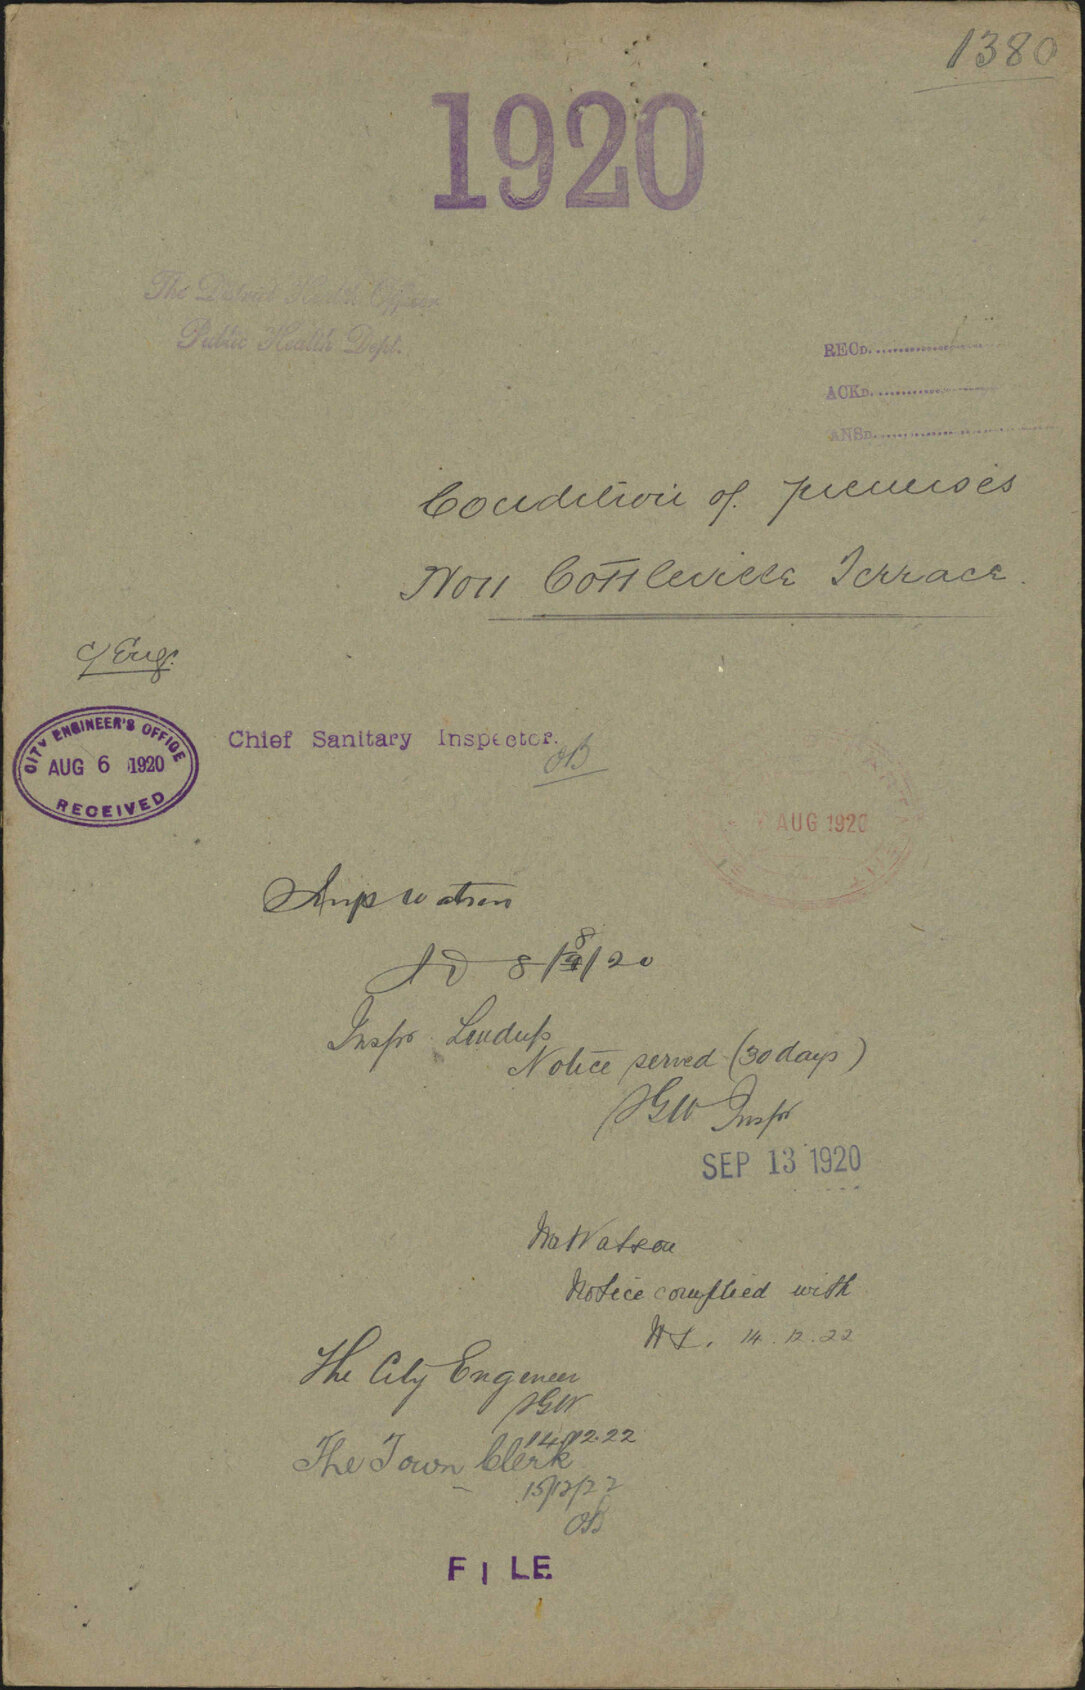 1380
1920
The District Health Officer
Public Health Dept.
RECD.
ACKD.
ANSD.
Condition of premises
No 11 Cottleville Terrace.
C/Eng.
CITY ENGINEER'S OFFICE
AUG 6 1920
RECEIVED
Chief Sanitary Inspector.
OB
AUG 1920
Insp Watson
8/8/20
Inspr
Notice served (30 days)
JGW Inspr
SEP 13 1920
Mr Watson
Notice complied with
14.12.22
The City Engineer
JGW
14.12.22
The Town Clerk
15/12/22
OB
FILE